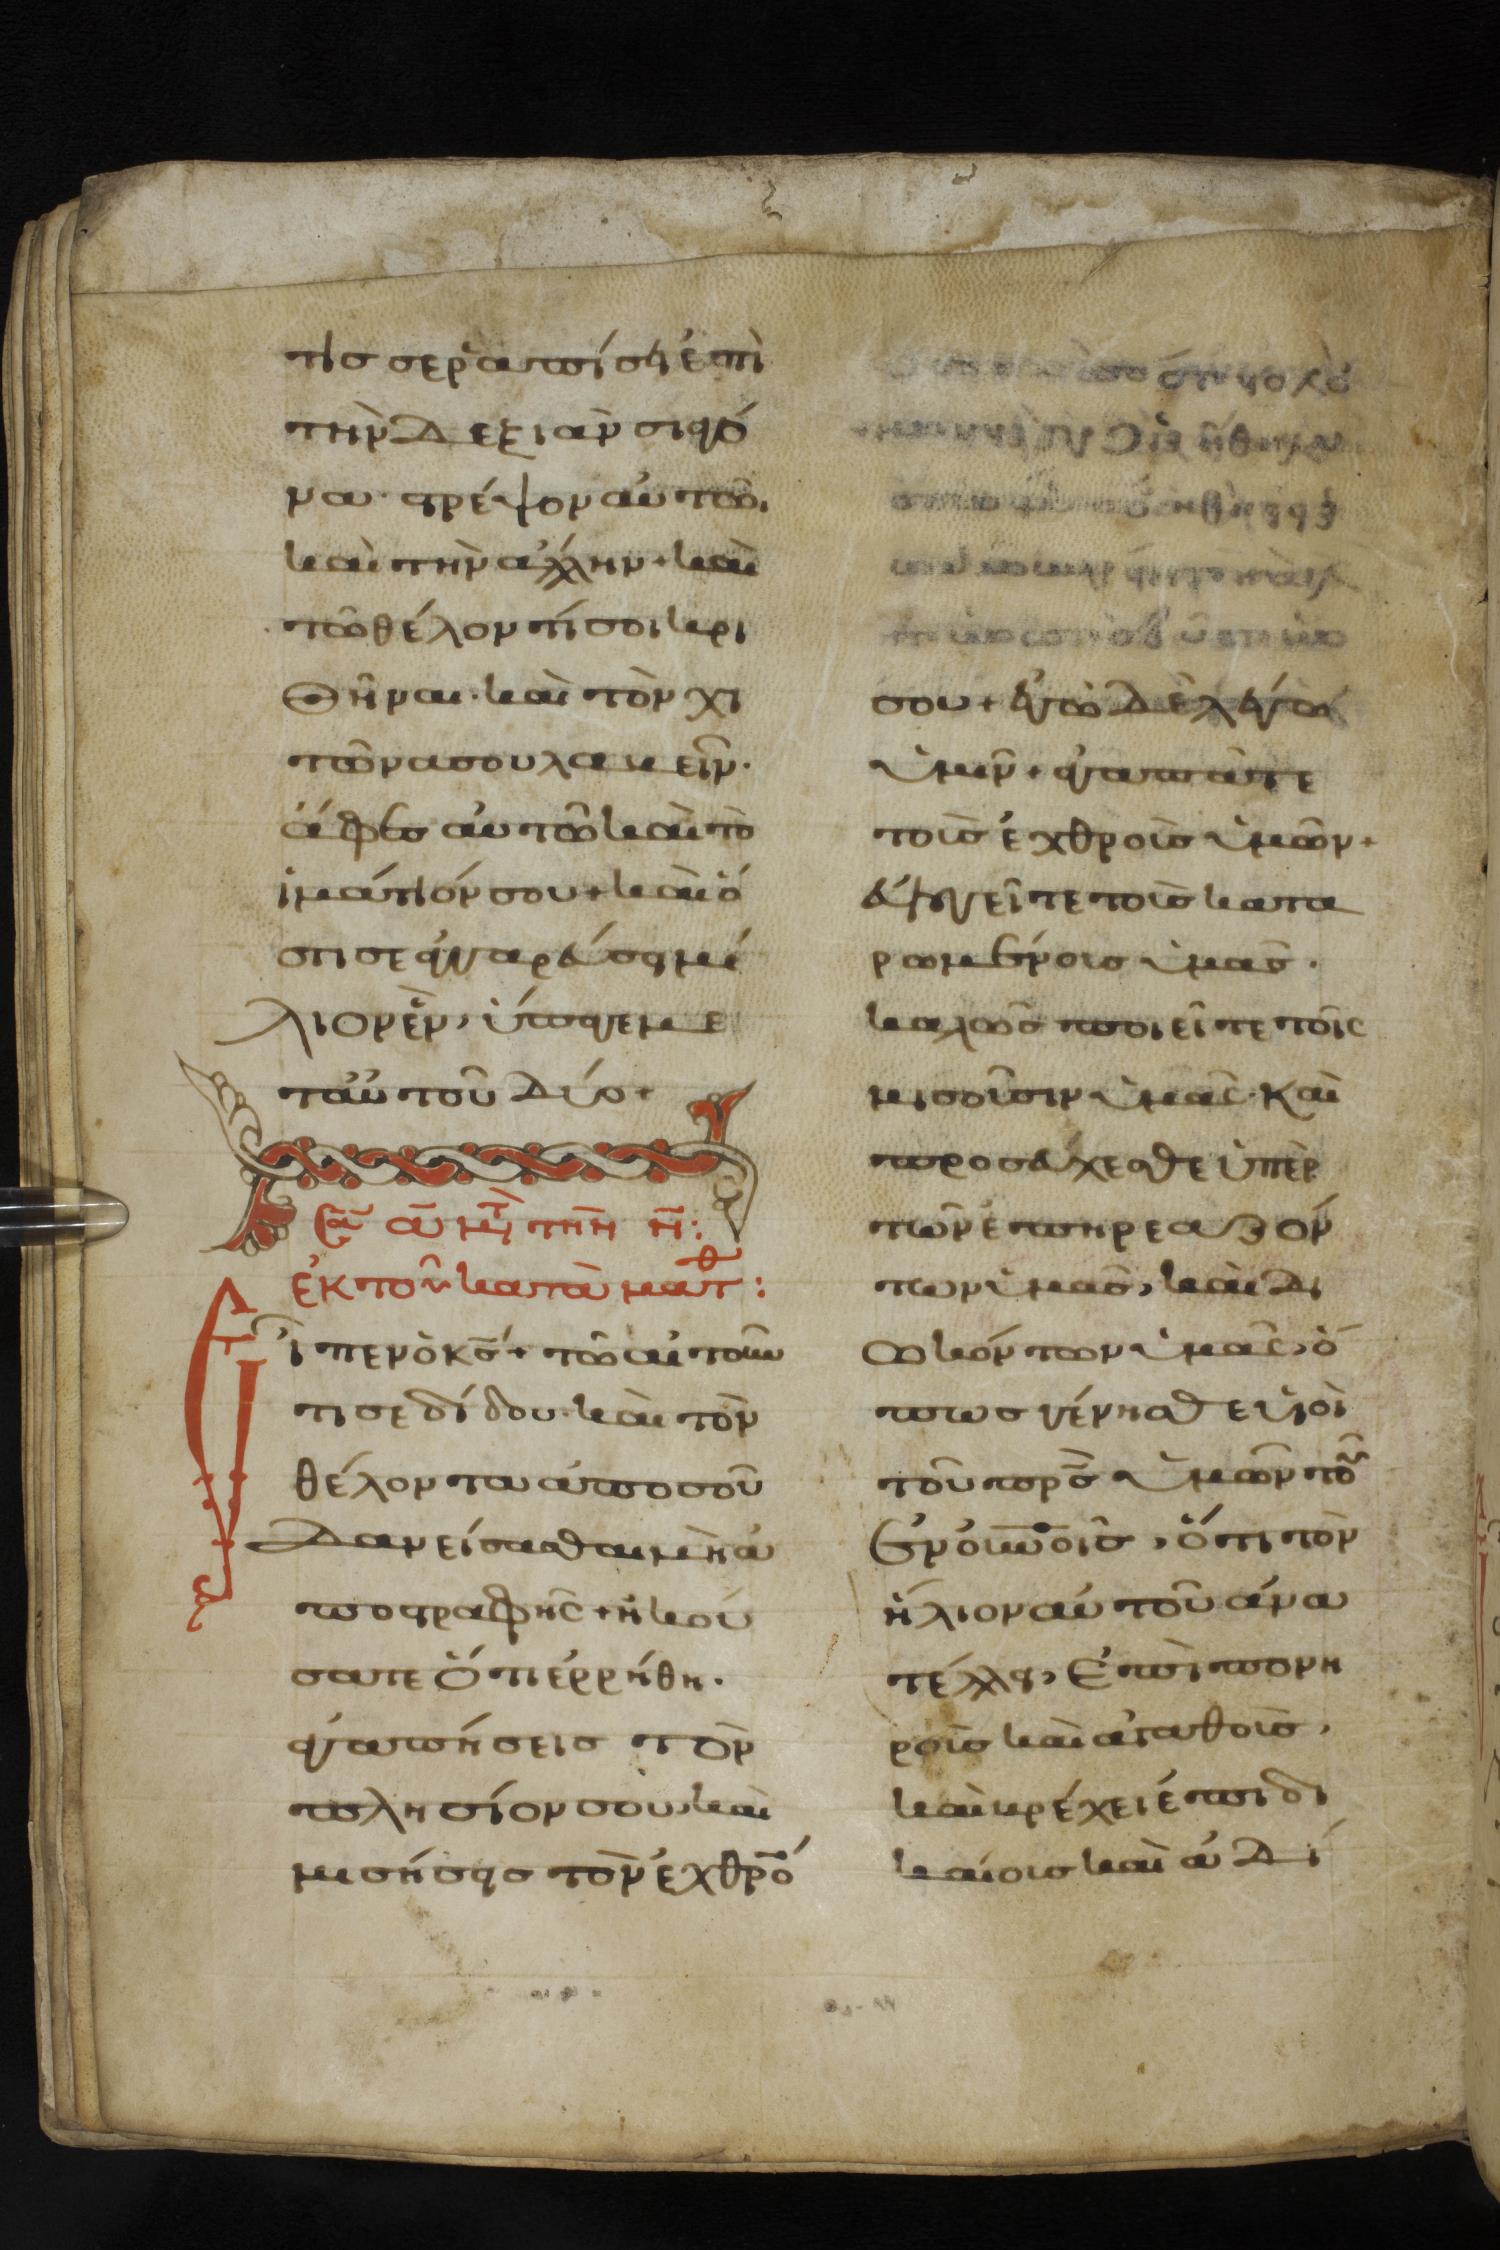 τίς σε ῥαπίσῃ ἐπὶ
τὴν δεξιὰν σιαγό
να· στρέψον αὐτῶ,
καὶ τὴν ἄλλην + καὶ
τῶ θέλοντί σοι κρι
θῆναι· καὶ τὸν χι
τῶνα σου λαβεῖν·
ἄφες αὐτῶ καὶ τὸ
ἱμάτιόν σου + καὶ ὅ
στις σε ἀγγαρεύσει μί
λιον ἓν, ὕπαγε με
τ' αὐτοῦ δύο +
ἐκ τοῦ κατὰ ματθ:
Εἶπεν ὁ κς + τῶ αἰτοῦν
τι σε δίδου· καὶ τὸν
θέλοντα ἀπο σοῦ
δανείσασθαι μὴ ἀ
ποστραφῆς + ἠκού
σατε ὅτι ἐρρήθη·
ἀγαπήσεις τὸν
πλησίον σου, καὶ
μισήσεις τὸν ἐχθρό
σου + ἐγὼ δὲ λέγω
ὑμῖν + ἀγαπᾶτε
τοὺς ἐχθροὺς ὑμῶν +
εὐλογεῖτε τοὺς κατα
ρωμένους ὑμᾶς·
καλῶς ποιεῖτε τοῖς
μισοῦσιν ὑμᾶς· καὶ
προσεύχεσθε ὑπὲρ
τῶν ἐπηρεαζόν
των ὑμᾶς, καὶ δι
ωκόντων ὑμᾶς, ὅ
πως γένησθε υἱοὶ
τοῦ πρς ὑμῶν τοῦ
ἐν οὐνοις, ὅτι τὸν
ἥλιον αὐτοῦ ἀνα
τέλλει, ἐπὶ πονη
ροὺς καὶ ἀγαθοὺς,
καὶ βρέχει ἐπι δι
καίους καὶ ἀδί